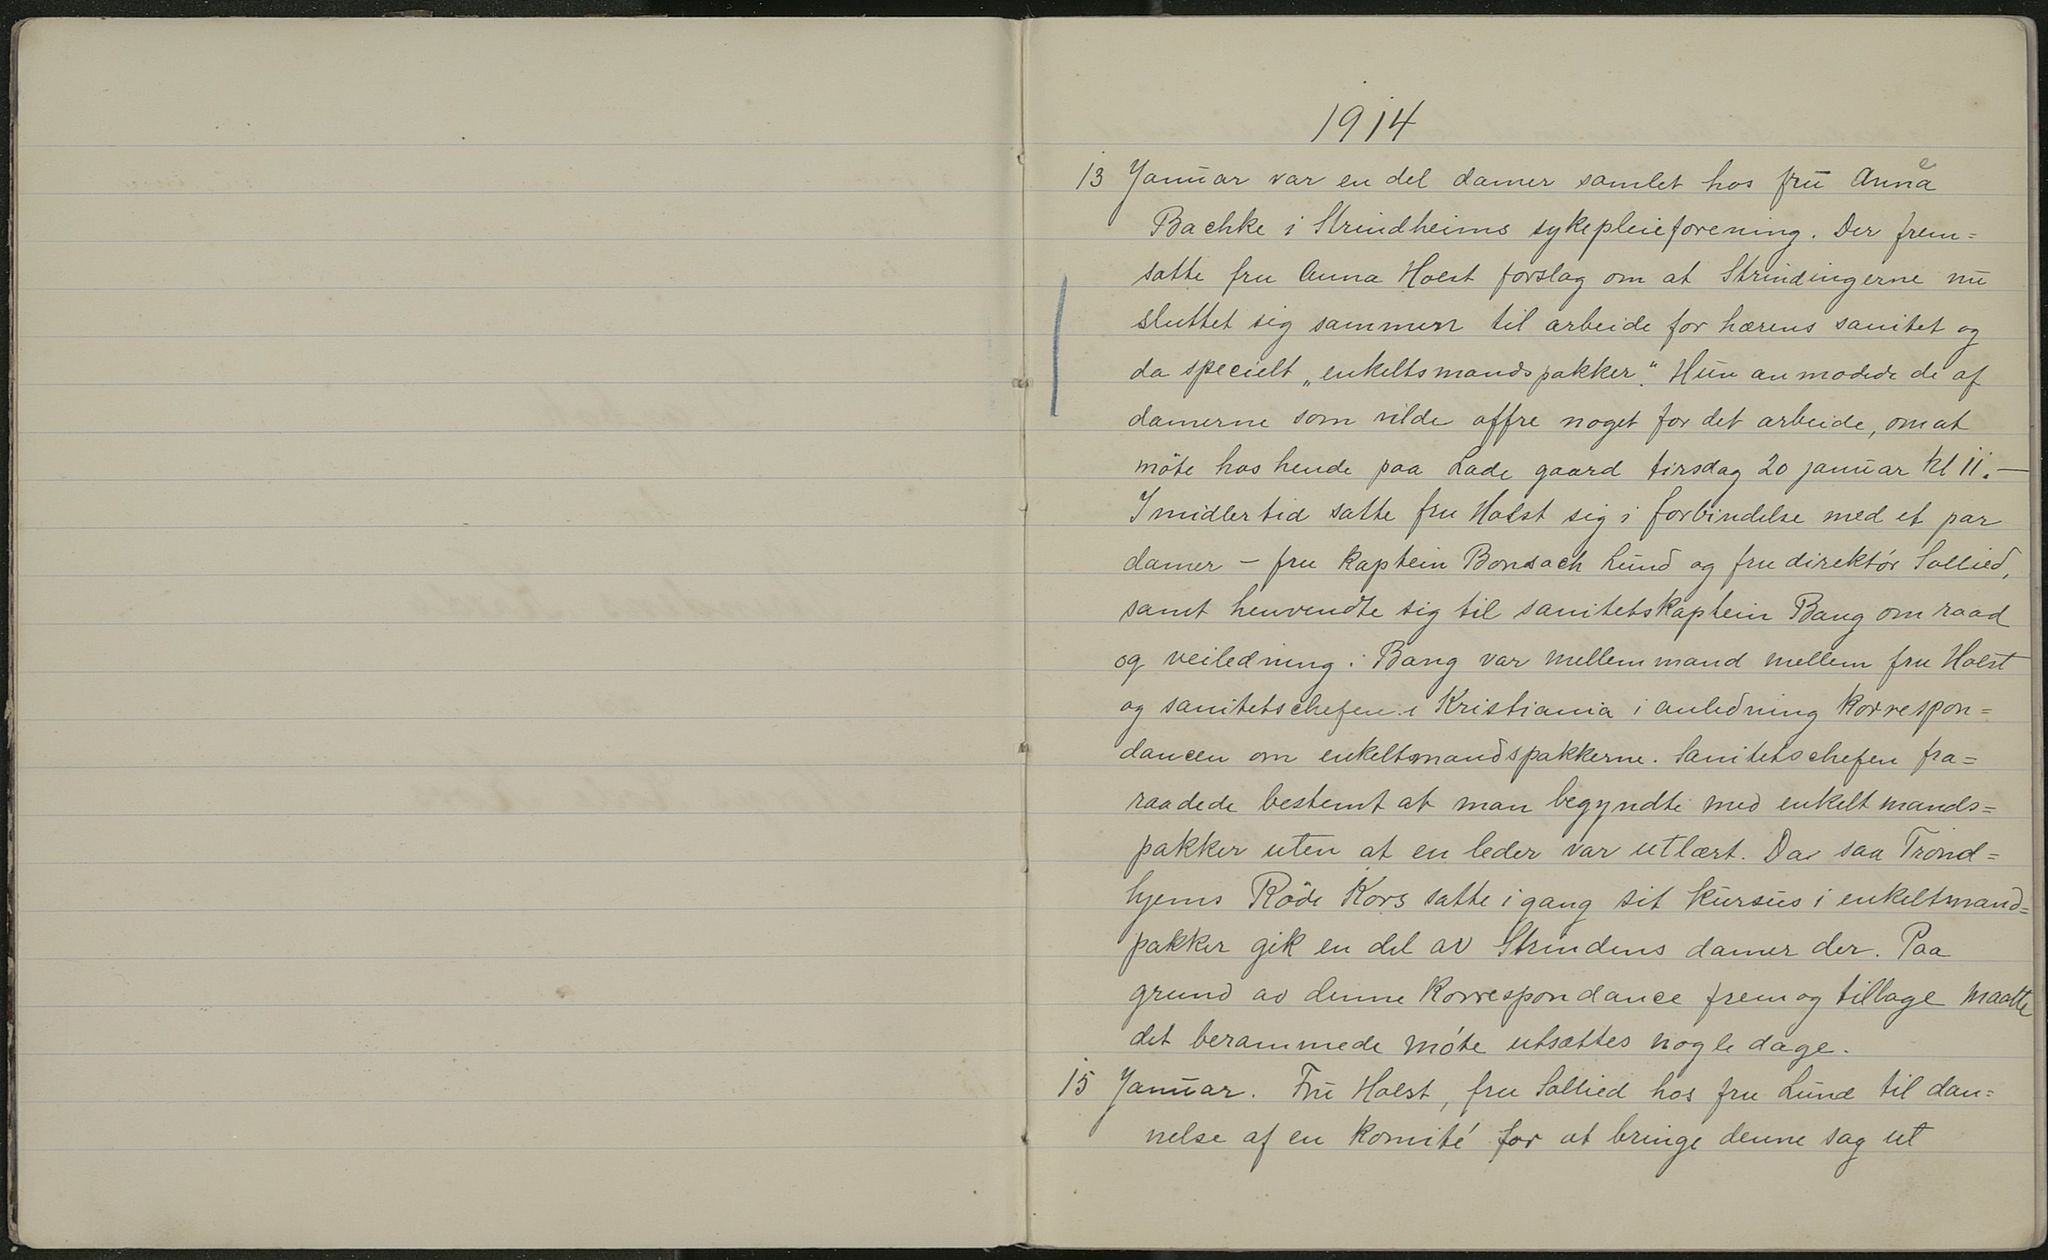 1914
13 Januar var en del damer samlet hos fru Anna e
Bachke i Strindheims sykepleieforening. Der frem=
satte fru Anna Holst forslag om at Strindingerne nu
sluttet sig sammen til arbeide for hærens sanitet og
da specielt „enkeltsmandspakker". Hun anmodede de af
damerne som vilde offre noget for det arbeide, om at
möte hos hende paa Lade gaard tirsdag 20 januar kl 11. —
Imidlertid satte fru Holst sig i forbindelse med et par
damer – fru kaptein Bonsach Lund og fru direktór Sollied,
samt henvendte sig til sanitetskaptein Bang om raad
og veiledning. Bang var mellemmand mellem fru Holst
og sanitetschefen i Kristiania i anledning korrespon=
dancen om enkeltsmandspakkerne. Sanitetschefen fra=
raadede bestemt at man begyndte med enkeltmands=
pakker uten at en leder var utlært. Da saa Trond=
hjems Röde Kors satte i gang sit kursus i enkeltmand=
pakker gik en del av Strindens damer der. Paa
grund av denne korrespondance frem og tilbage maatte
det berammede móte utsættes nogle dage.
15 Januar. Fru Holst, fru Sollied hos fru Lund til dan=
nelse af en komité for at bringe denne sag ut